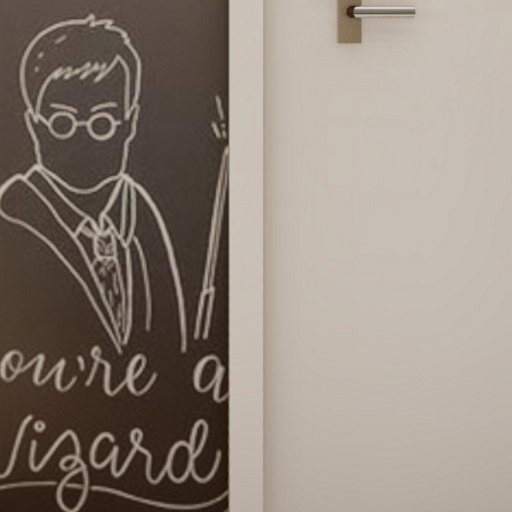 ou're a
Wizard